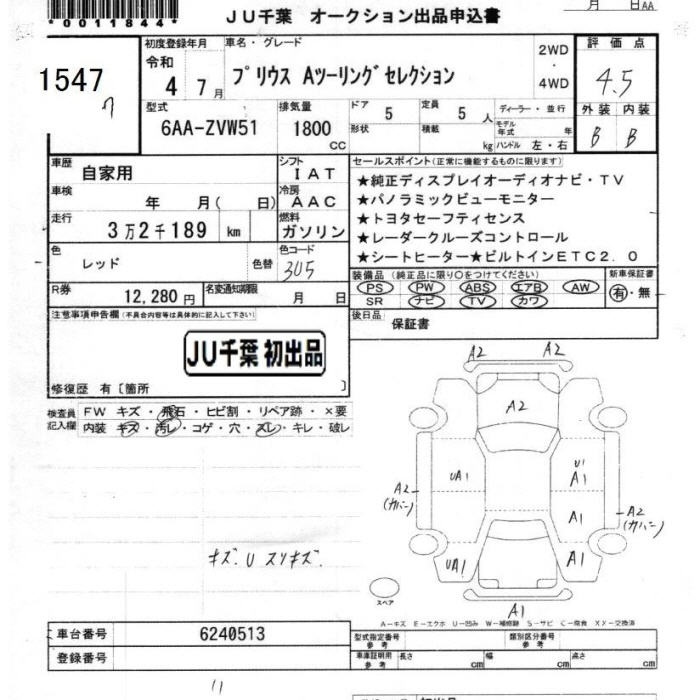 *0011844*
JU千葉 オークション出品申込書
月 日AA
1547
7
初度登録年月
令和
4 7月
車名・グレード
プリウス Aツーリングセレクション
2WD
・
4WD
評価点
4.5
外装 内装
B B
型式
6AA-ZVW51
排気量
1800
CC
ドア 5
形状
定員 5 人
積載 kg
ディーラー・並行
モデル年式 年
ハンドル 左・右
車歴
自家用
シフト
IAT
車検
年 月( 日)
冷房
AAC
走行
3万2千189 km
燃料
ガソリン
色
レッド
色替
色コード
3U5
R券
12,280円
名変通知期限
月 日
セールスポイント(正常に機能するものに限ります)
★純正ディスプレイオーディオナビ・TV
★パノラミックビューモニター
★トヨタセーフティセンス
★レーダークルーズコントロール
★シートヒーター★ビルトインETC2.0
装備品 (純正品に限り○をつけてください)
PS PW ABS エアB AW
SR ナビ TV カワ
新車保証書
有・無
後日品
保証書
注意事項申告欄(不具合内容等は具体的に記入して下さい)
JU千葉 初出品
修復歴 有〔箇所 〕
検査員
記入欄
FW キズ・飛石・ヒビ割・リペア跡・×要
内装 キズ・汚レ・コゲ・穴・スレ・キレ・破レ
キズ U スリキズ
A2 A2
A2
UA1
U1
A1
A2
(カバー)
A1
A2
(カバー)
UA1
A1
A1
スペア
A-キズ E-エクボ U-凹み W-補修跡 S-サビ C-腐食 XX-交換済
車台番号
6240513
登録番号
型式指定番号
参考
類別区分番号
参考
車庫証明用
参考
長さ cm
幅 cm
高さ cm
11